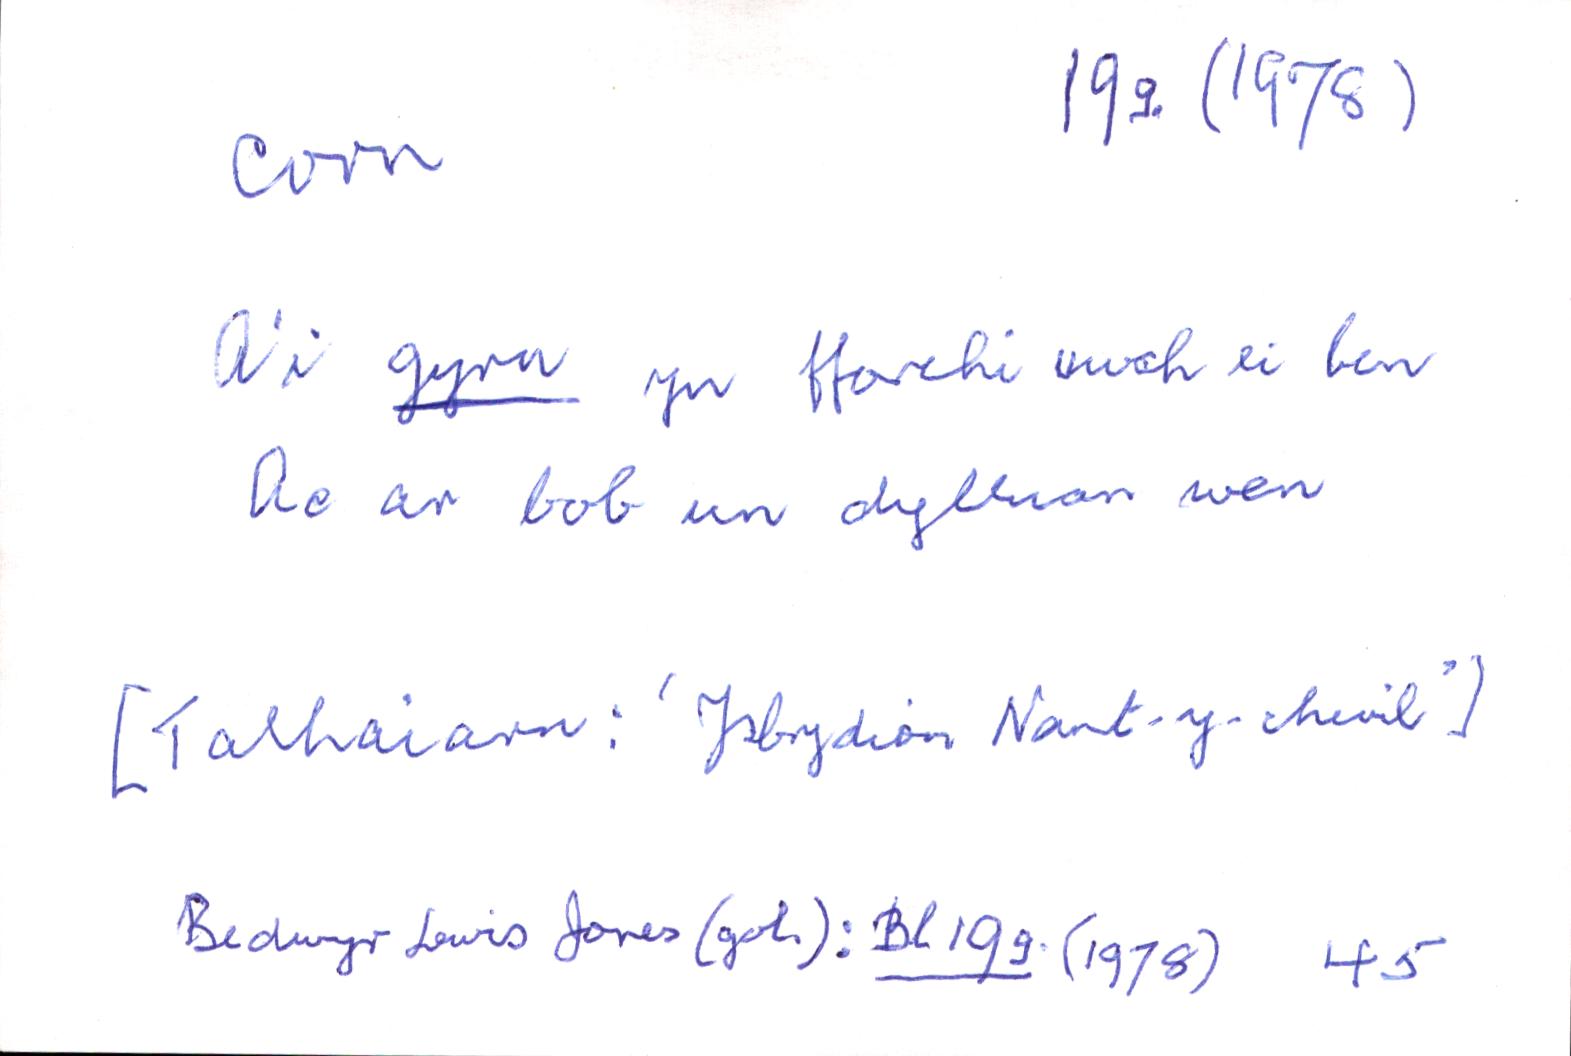 19g. (1978)
corn
A'i gyrn yn ffarchi uwch ei ben
Ac ar bob un dylluan wen
[Talhaiarn: 'Ysbrydion Nant-y-chwil']
Bedwyr Lewis Jones (gol.): Bl 19g. (1978) 45